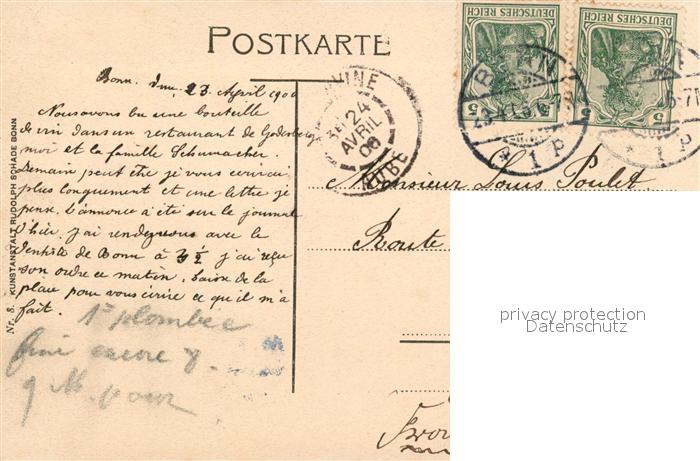 POSTKARTE
Bonn. den 23 April 1906
Nous avons bu une bouteille
de vin dans un restaurant de Godesberg
moi et la famille Schumacher.
Demain peut être je vous écrirai
plus longuement et une lettre je
pense. L'annonce a été sur le journal
d'hier. J'ai rendezvous avec le
dentiste de Bonn à 3 ½ j'ai reçu
son ordre ce matin. Laisse de la
place pour vous écrire ce qu'il m'a
fait.
1 plombée
encore 8.
9 Mk. pour
Nr. 8. KUNSTANSTALT RUDOLPH SCHADE BONN
DEUTSCHES REICH
5 5
DEUTSCHES REICH
5
BONN
* 1 p
* 1 p
24
AVRIL
06
AUBE
Monsieur Louis Poulet
Route
privacy protection
Datenschutz